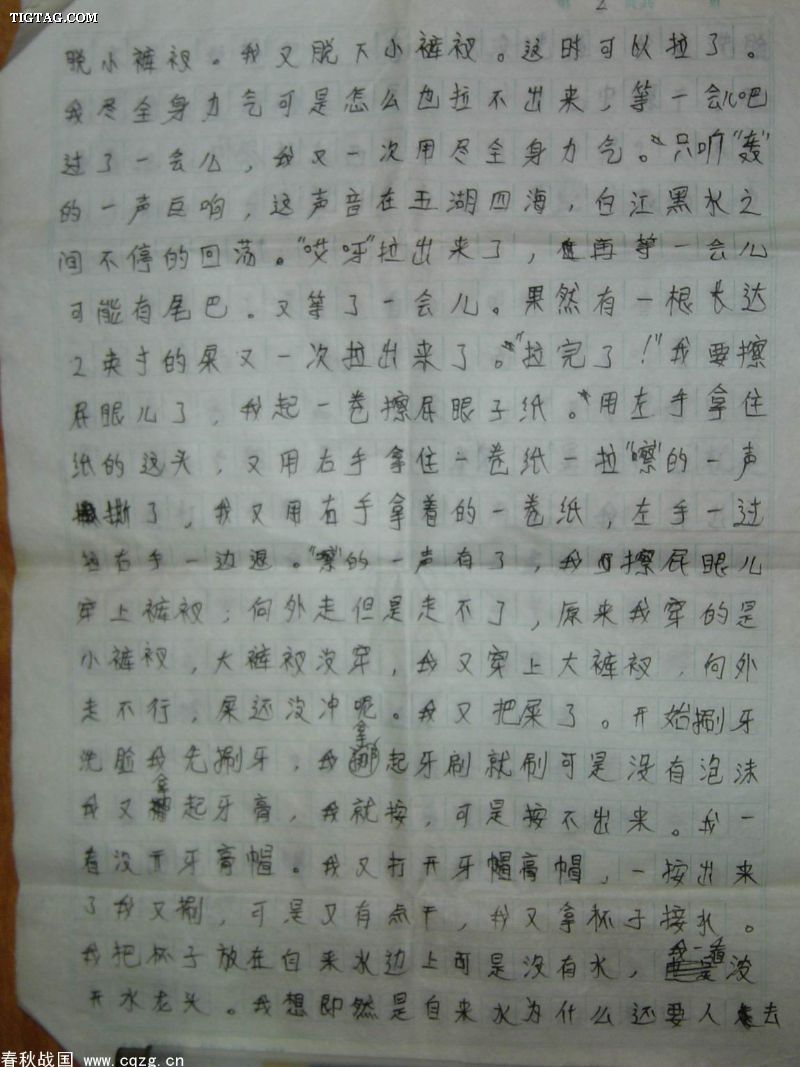 TIGTAG.COM
2
脱小裤衩。我又脱下小裤衩。这时可以拉了。
我尽全身力气可是怎么也拉不出来，等一会儿吧
过了一会儿，我又一次用尽全身力气。只听“轰”
的一声巨响，这声音在五湖四海，白江黑水之
间不停的回荡。“哎呀”拉出来了，再等一会儿
可能有尾巴。又等了一会儿。果然有一根长达
2英寸的屎又一次拉出来了。“拉完了！”我要擦
屁眼儿了，我起一卷擦屁眼子纸。用左手拿住
纸的这头，又用右手拿住一卷纸一拉“嚓”的一声
撕了，我又用右手拿着的一卷纸，左手一过
右手一边退。“嚓”的一声有了，我擦屁眼儿
穿上裤衩；向外走但是走不了，原来我穿的是
小裤衩，大裤衩没穿，我又穿上大裤衩，向外
走不行，屎还没冲呢。我又把屎了。开始刷牙
洗脸我先刷牙，我拿起牙刷就刷可是没有泡沫
我又拿起牙膏，我就按，可是按不出来。我一
看没开牙膏帽。我又打开牙帽膏帽，一按出来
了我又刷，可是又有点干，我又拿杯子接水。
我把杯子放在自来水边上可是没有水，我一看没
开水龙头。我想即然是自来水为什么还要人去
春秋战国 www.cqzg.cn